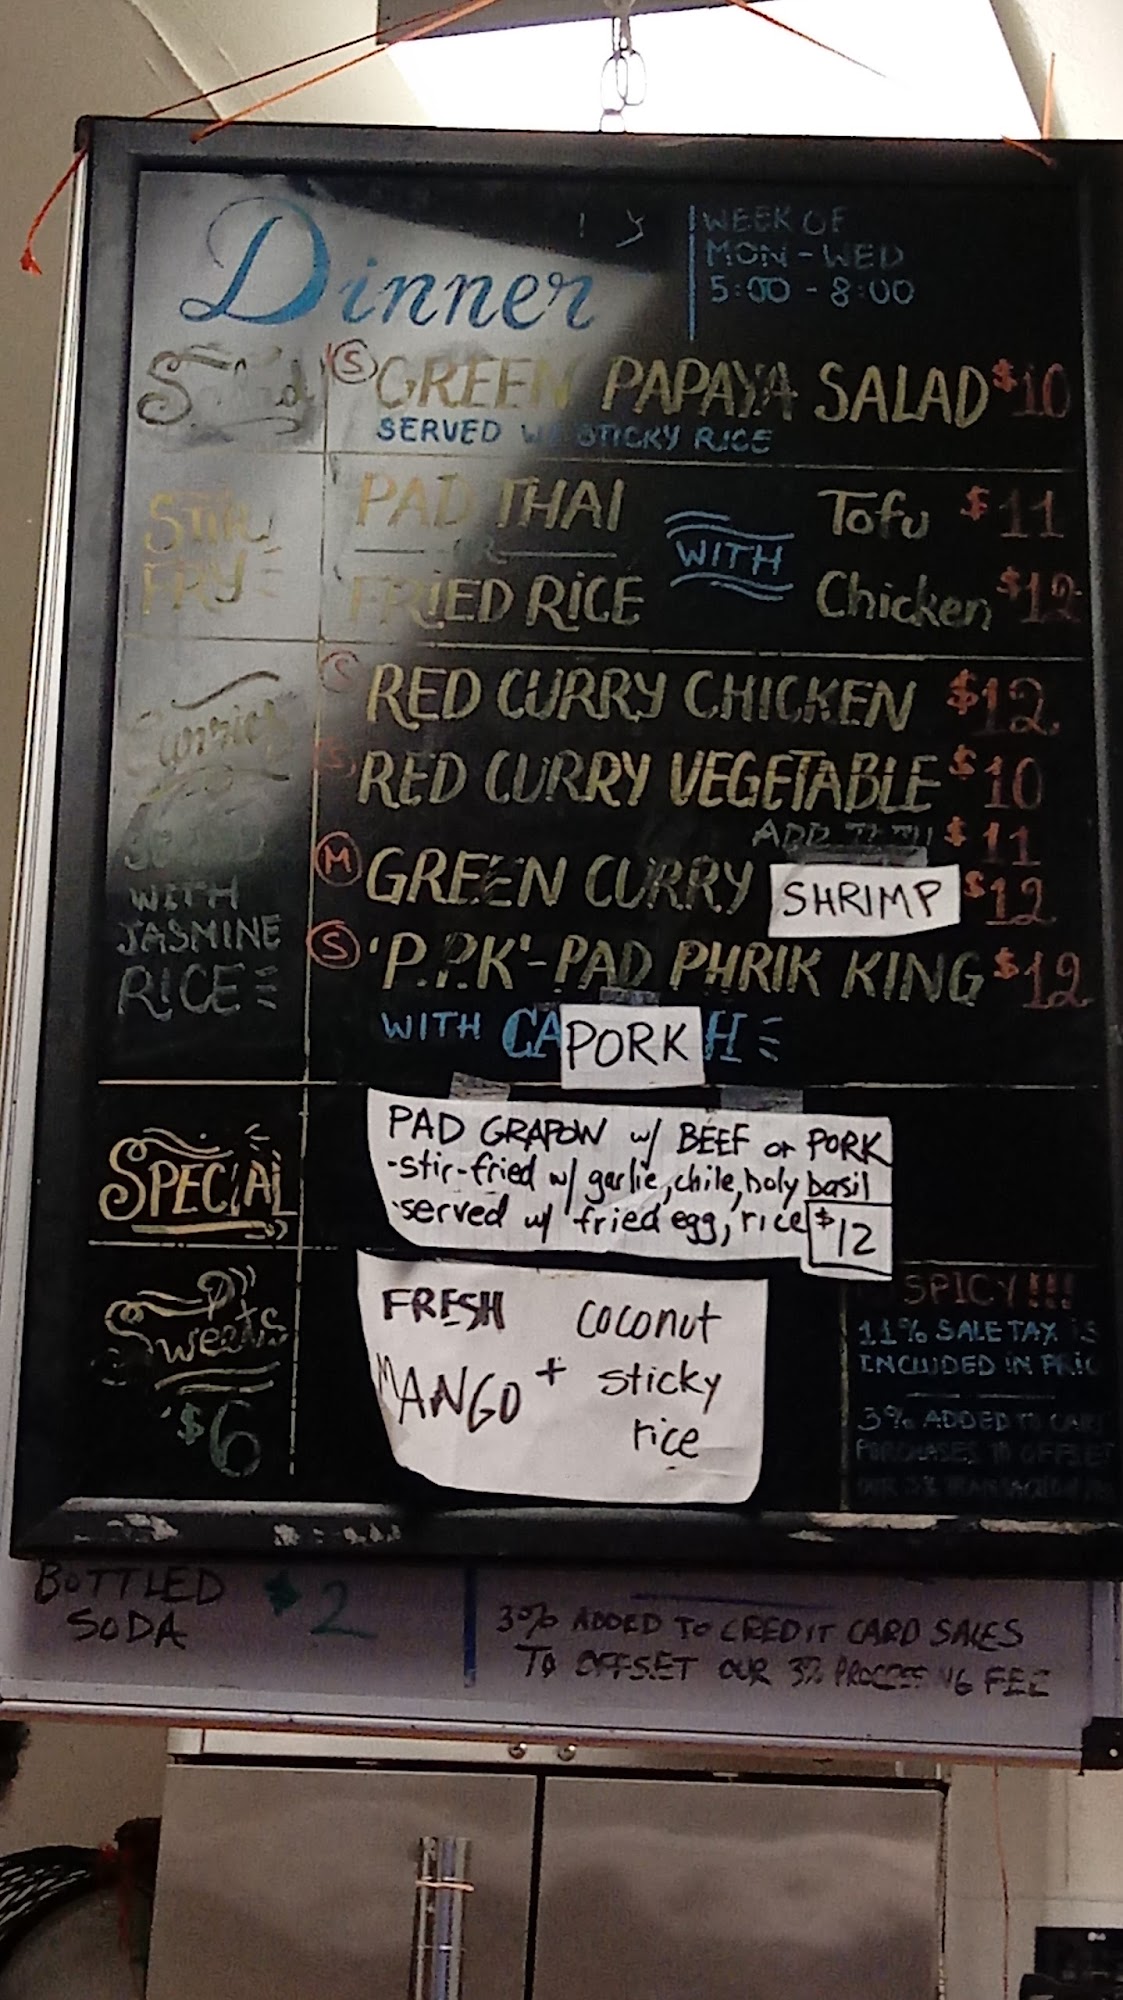 Dinner
WEEK OF
MON - WED
5:00 - 8:00
Salad
S GREEN PAPAYA SALAD $10
SERVED W/ STICKY RICE
STIR
FRY
PAD THAI
OR
FRIED RICE
WITH
Tofu $11
Chicken $12
Curries
WITH
JASMINE
RICE
S RED CURRY CHICKEN $12
S RED CURRY VEGETABLE $10
ADD TOFU $11
M GREEN CURRY SHRIMP $12
S 'P.P.K' - PAD PHRIK KING $12
WITH CA PORK H
SPECIAL
PAD GRAPOW w/ BEEF or PORK
-stir-fried w/ garlic, chile, holy basil
-served w/ fried egg, rice $12
Sweets
$6
FRESH
MANGO +
coconut
sticky
rice
SPICY!!!
11% SALE TAX IS
INCLUDED IN PRIC
3% ADDED TO CARD
PURCHASES TO OFFSET
OUR 3% TRANSACTION
BOTTLED
SODA $2
3% ADDED TO CREDIT CARD SALES
TO OFFSET OUR 3% PROCESSING FEE